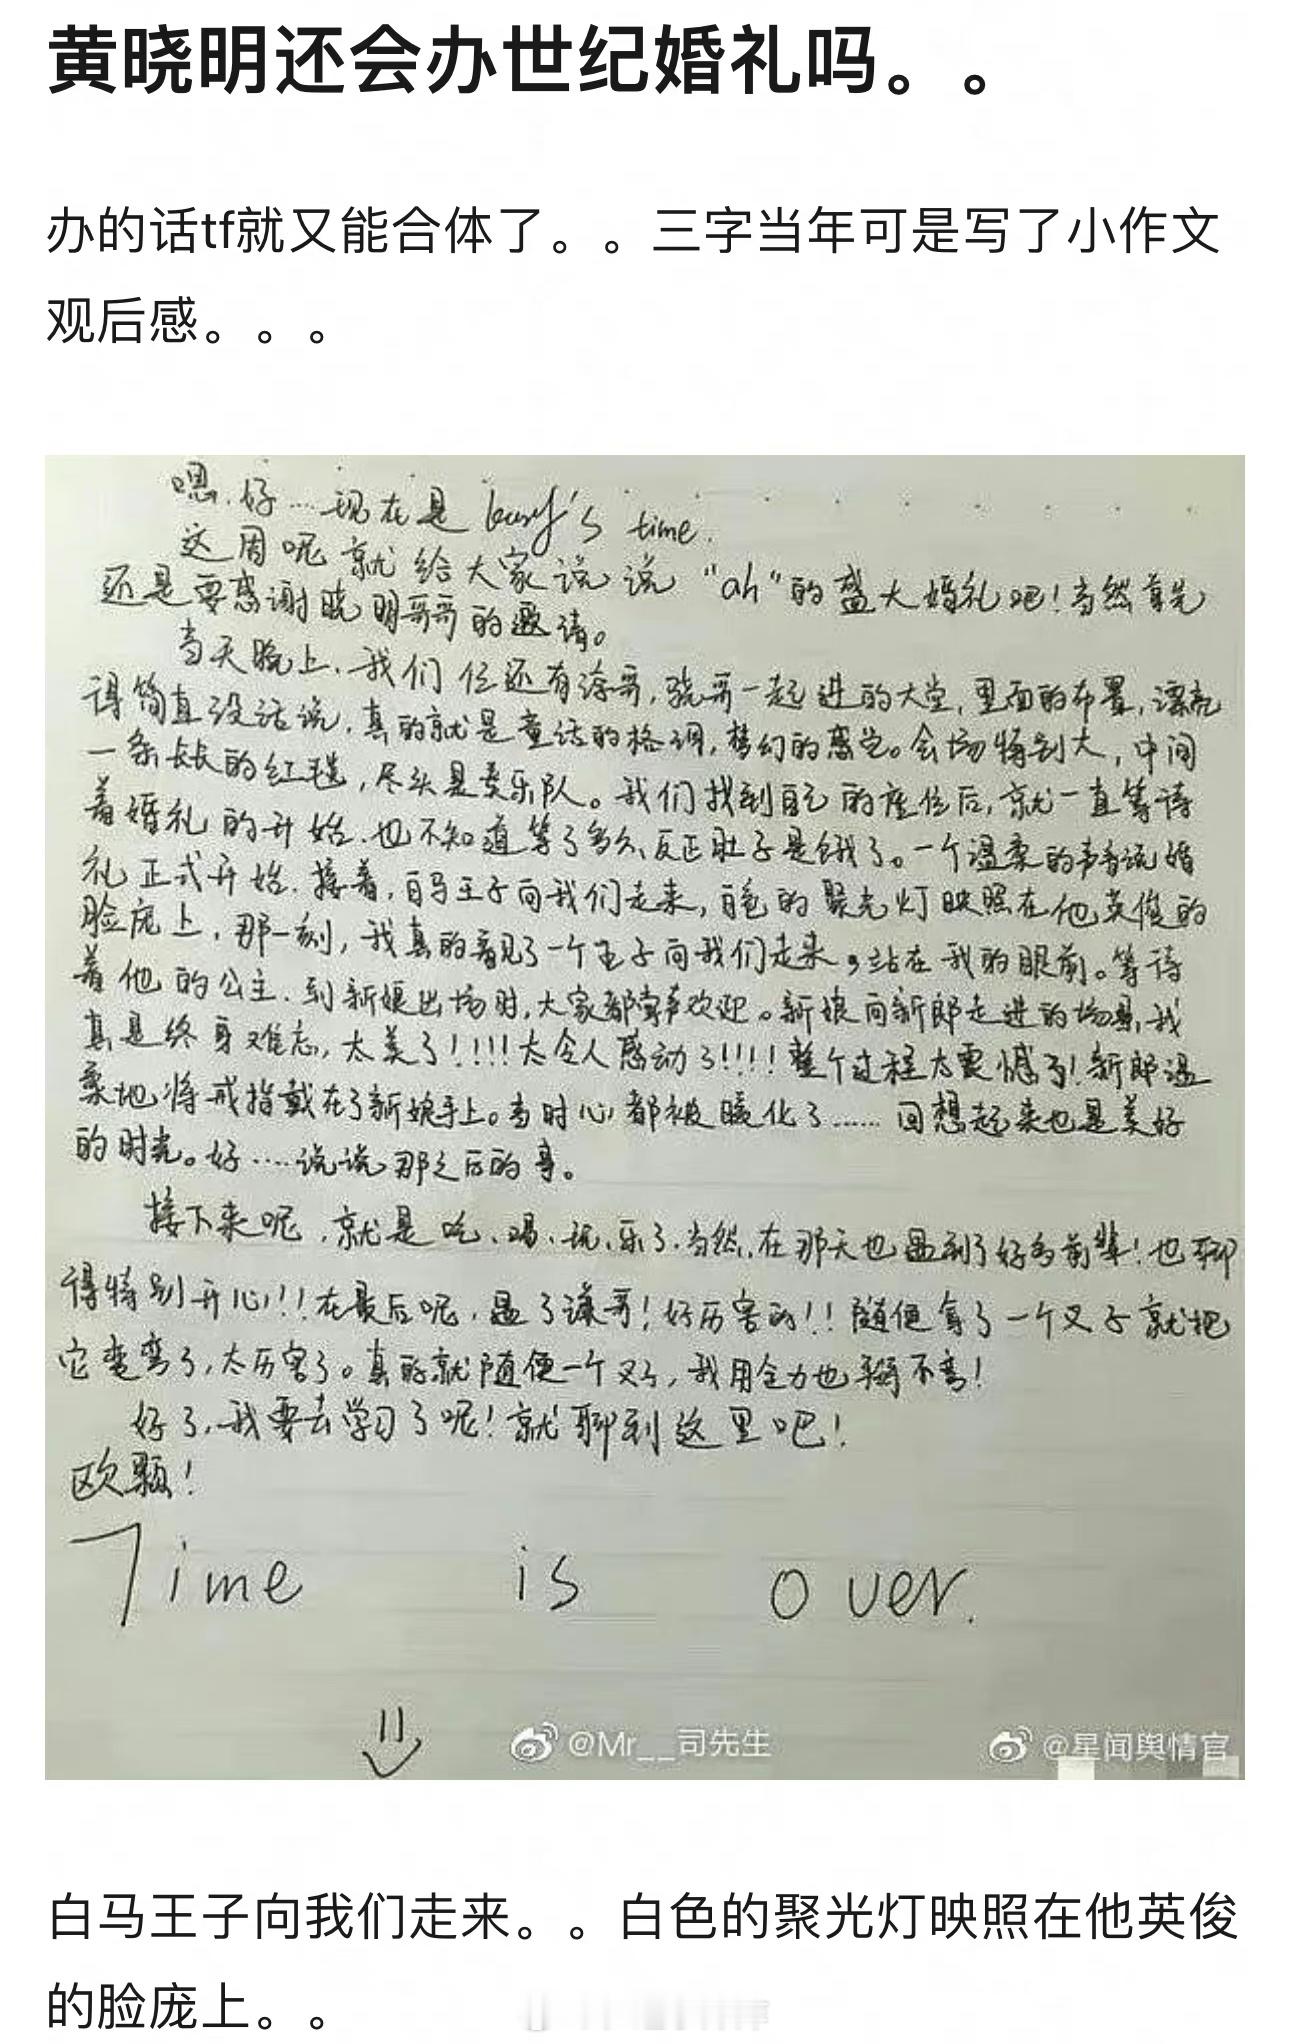 黄晓明还会办世纪婚礼吗。。
办的话tf就又能合体了。。三字当年可是写了小作文
观后感。。。
嗯.好……现在是 's time.
这周呢就给大家说说"ah"的盛大婚礼吧!当然首先
还是要感谢晓明哥哥的邀请。
当天晚上,我们仨还有涂哥,骁哥一起进的大堂,里面的布置,漂亮
得简直没话说,真的就是童话的格调,梦幻的感觉。会场特别大,中间
一条长长的红毯,尽头是奏乐队。我们找到自己的座位后,就一直等待
着婚礼的开始.也不知道等了多久,反正肚子是饿了。一个温柔的声音说婚
礼正式开始.接着,白马王子向我们走来,白色的聚光灯映照在他英俊的
脸庞上,那一刻,我真的看见了一个王子向我们走来,站在我的眼前。等待
着他的公主.到新娘出场时,大家都掌声欢迎。新娘向新郎走进的场景,我
真是终身难忘,太美了!!!!太令人感动了!!!!整个过程太震憾了!新郎温
柔地将戒指戴在了新娘手上。当时心都被暖化了……回想起来也是美好
的时光。好……说说那之后的事。
接下来呢,就是吃、喝、玩、乐了.当然,在那天也遇到了好多前辈!也聊
得特别开心!!在最后呢,遇了谦哥!好厉害的!!随便拿了一个叉子就把
它变弯了,太厉害了。真的就随便一个叉子,我用全力也掰不弯!
好了,我要去学习了呢!就聊到这里吧!
欧颗!
Time is over.
@Mr__司先生
@星闻舆情官
白马王子向我们走来。。白色的聚光灯映照在他英俊
的脸庞上。。